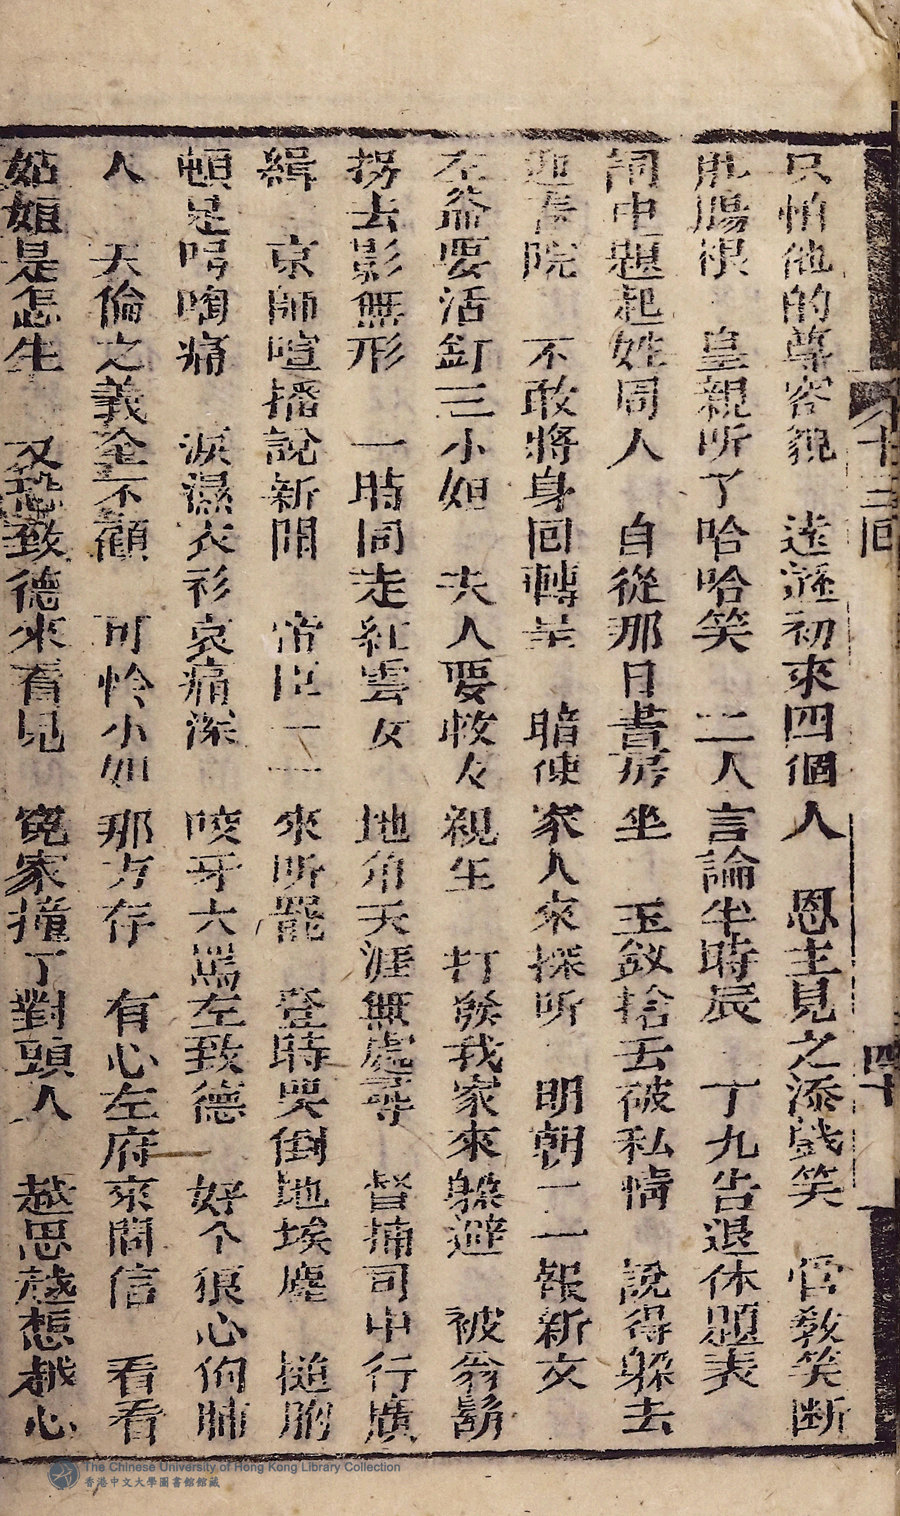 十三回
四十
只怕他的尊容貌　遠遞初來四個人　恩主見之添戲笑　管敎笑断
肚腸根　皇親听了哈哈笑　二人言論半時辰　丁九告退休題表
詞中題起姓周人　自從那日書房坐　玉釵拾去破私情　說得躲去
迎春院　不敢將身回轉呈　暗使家人來探听　明朝一一報新文
左爺要活釘三小姐　夫人要救々親生　打發我家來躲避　被翁鬍
拐去影無形　一時同走紅雲女　地角天涯無處尋　督捕司中行廣
緝　京師喧播說新聞　帝臣一一來听罷　登時哭倒地埃塵　搥胸
頓足哭啕痛　淚濕衣衫哀痛深　咬牙大罵左致德　好个狠心伺肺
人　天倫之義全不顧　可怜小姐那方存　有心左府來問信　看看
姑娘是怎生　又恐致德來看見　寃家撞了對頭人　越思越想越心
The Chinese University of Hong Kong Library Collection
香港中文大學圖書館館藏